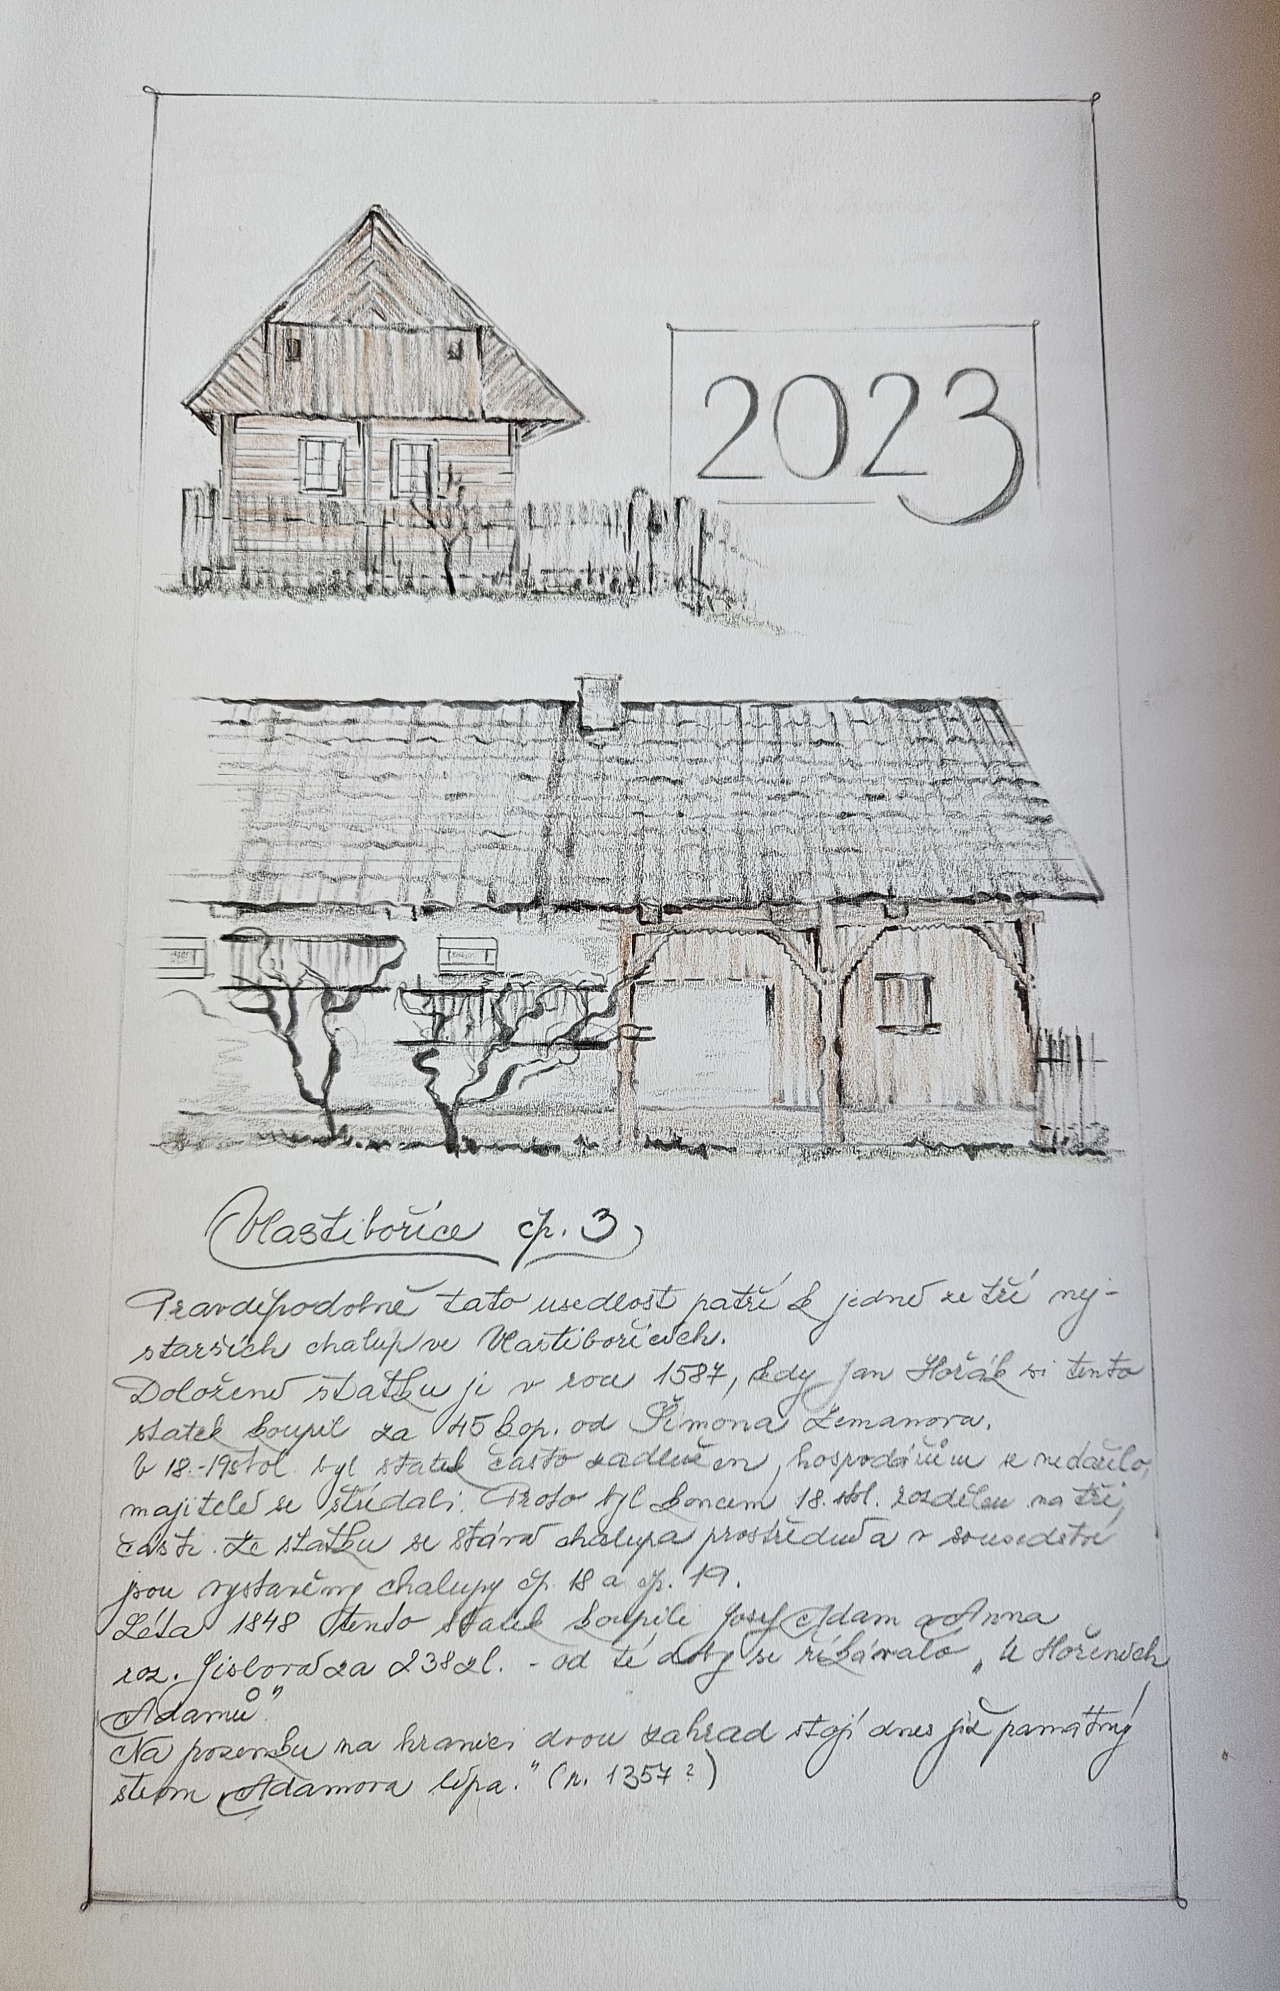 2023
Vlastibořice čp. 3
Pravděpodobně tato usedlost patří k jedné ze tří nej-
starších chalup ve Vlastibořicích.
Doložení statku je v roce 1587, kdy Jan Hořák si tento
statek koupil za 45 kop. od Šimona Zemanova.
V 18.-19stol. byl statek často zadlužen, hospodářům se nedařilo,
majitelé se střídali. Proto byl koncem 18. stol. rozdělen na tři
části. Ze statku se stává chalupa prostřední a v sousedství
jsou vystavěny chalupy čp. 18 a čp. 19.
Léta 1848 tento statek koupili Josef Adam a Anna
roz. za 238zl. - od té doby se říkávalo „U Hořeních
Adamů"
Na pozemku na hranici dvou zahrad stojí dnes již památný
strom „Adamova lípa." (r. 1357?)